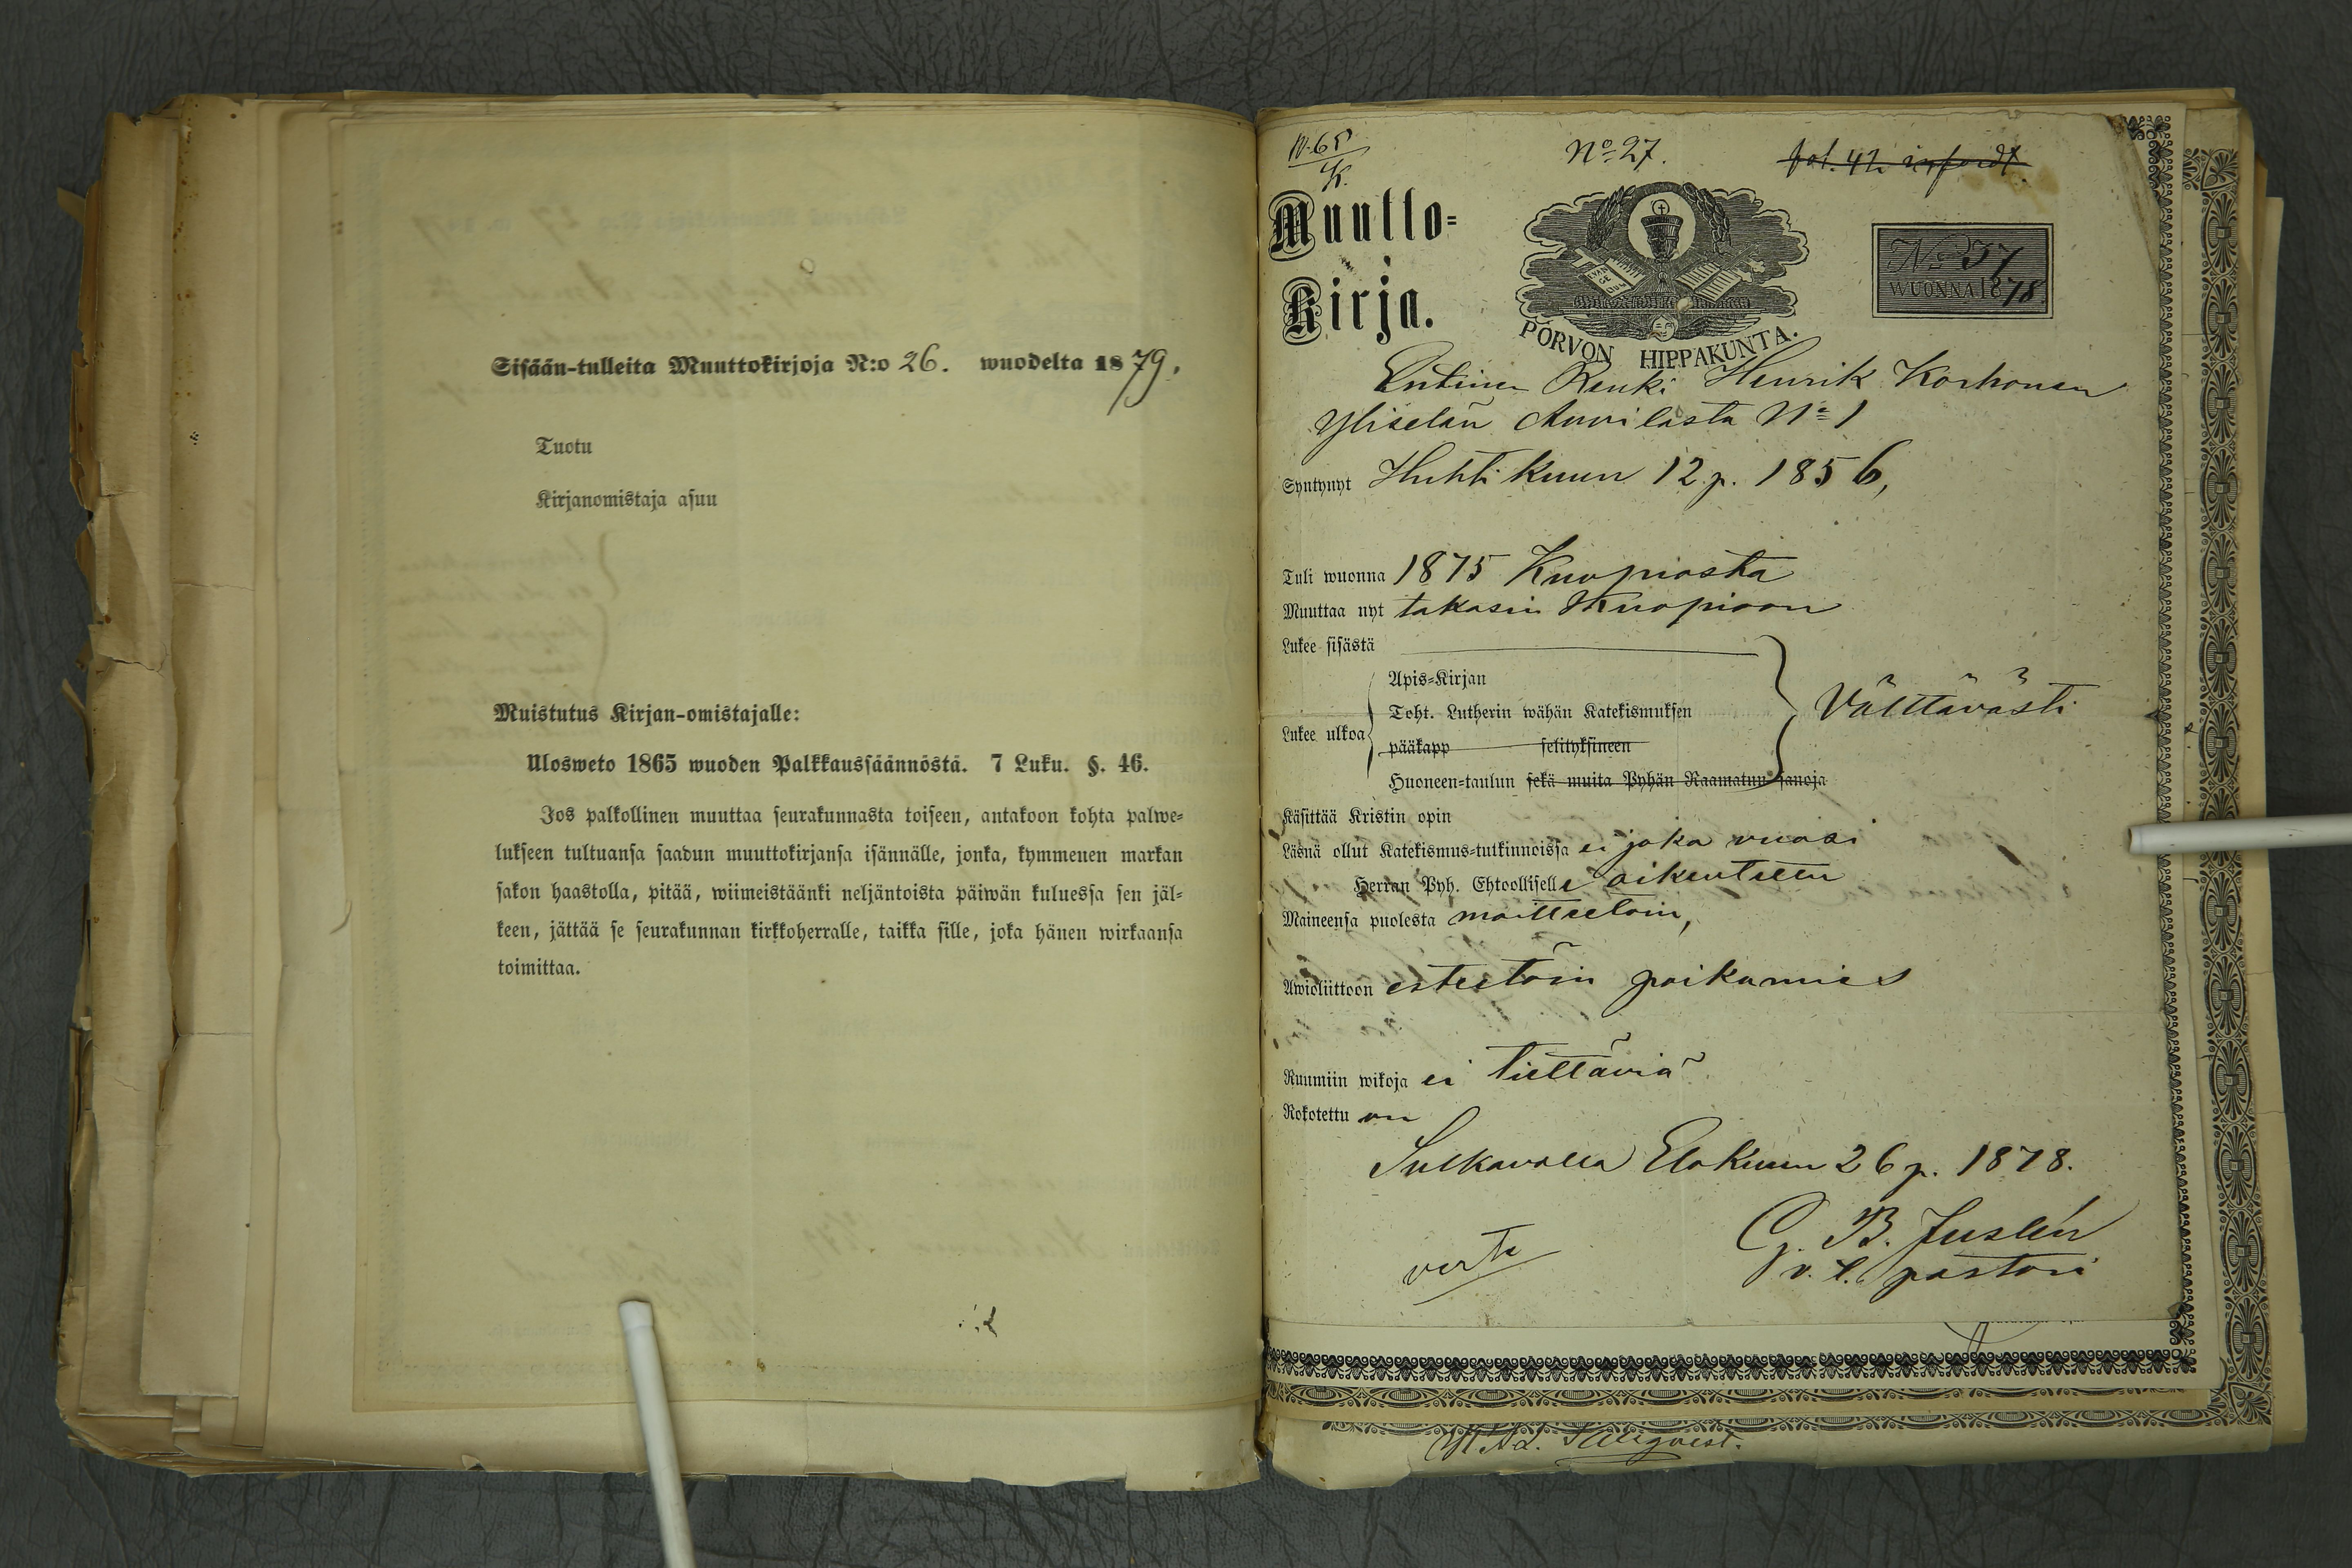 Sisään-tulleita Muuttokirjoja N:o 26. wuodelta 1879.
Tuotu
Kirjanomistaja asuu
Muistutus Kirjan-omistajalle:
Ulosweto 1865 wuoden Palkkaussäännöstä. 7 Luku. §. 46.
Jos palkollinen muuttaa seurakunnasta toiseen, antakoon kohta palwe-
lukseen tultuansa saadun muuttokirjansa isännälle, jonka, kymmenen markan
sakon haastolla, pitää, wiimeistäänki neljäntoista päiwän kuluessa sen jäl-
keen, jättää se seurakunnan kirkkoherralle, taikka sille, joka hänen wirkaansa
toimittaa.
N:o 27. fol. 42. infördt.
Muutto-
Kirja.
PORVON HIPPAKUNTA.
No 37
WUONNA 1878
Entinen Renki Henrik Korhonen
Yliselän Auvilasta No 1
Syntynyt Huhtikuun 12 p. 1856,
Tuli wuonna 1875 Kuopiosta
Muuttaa nyt takasin Kuopioon
Lukee sisästä
Apis-Kirjan
Toht. Lutherin wähän Katekismuksen
Lukee ulkoa Välttävästi
pääkapp selityksineen
Huoneen-taulun sekä muita Pyhän Raamatun sanoja
Käsittää Kristin opin
Läsnä ollut Katekismus-tutkinnoissa ei joka vuosi
Herran Pyh. Ehtoollisella oikeutteen
Maineensa puolesta moitteetoin,
Awioliittoon esteetöin poikamies
Ruumiin wikoja ei tiettäviä
Rokotettu on
Sulkavalla Elokuun 26 p. 1878.
G. B. Juslén
v. t. pastori
verte